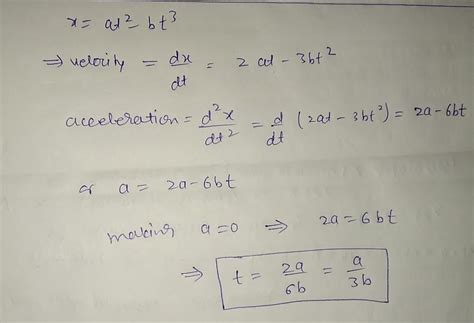 x = at² - bt³
⇒ velocity = dx/dt = 2at - 3bt²
acceleration = d²x/dt² = d/dt (2at - 3bt²) = 2a - 6bt
or a = 2a - 6bt
making a = 0 ⇒ 2a = 6bt
⇒ t = 2a/6b = a/3b